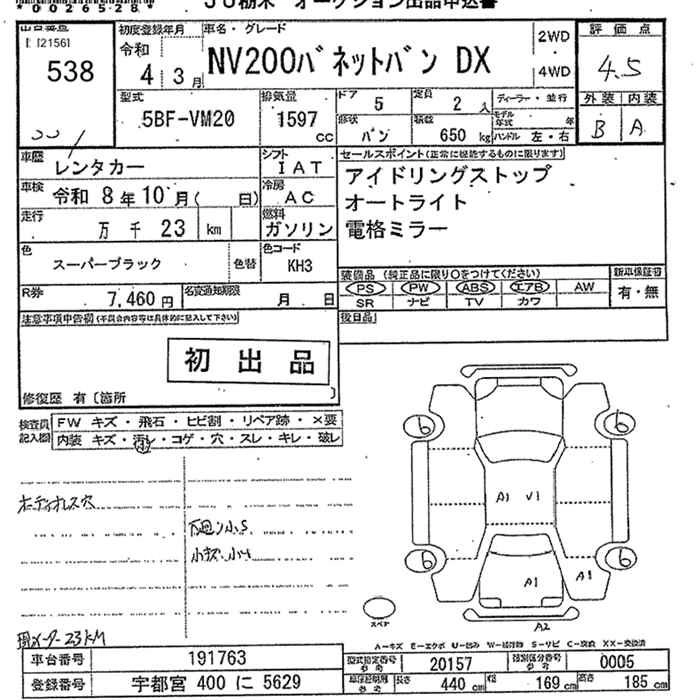 *0026528*
JU栃木 オークション出品申込書
538
初度登録年月
令和
4年 3月
車名・グレード
NV200バネットバン DX
2WD
4WD
評価点
4.5
外装 内装
B A
型式
5BF-VM20
排気量
1597 cc
ドア 5
定員 2人
ディーラー・並行
形状 バン
積載 650 kg
モデル年式 年
ハンドル 左・右
車歴 レンタカー
シフト IAT
セールスポイント(正常に機能するものに限ります)
車検 令和 8年 10月( 日)
冷房 AC
アイドリングストップ
オートライト
電格ミラー
走行 万 千 23 km
燃料 ガソリン
色 スーパーブラック 色替
色コード KH3
装備品 (純正品に限り○をつけてください)
新車保証書
PS PW ABS エアB AW
有・無
SR ナビ TV カワ
R券 7,460円
名変通知期限 月 日
注意事項申告欄(不具合内容等は具体的に記入して下さい)
後日品
初出品
修復歴 有〔箇所 〕
検査員記入欄
FW キズ・飛石・ヒビ割・リペア跡・×要
内装 キズ・汚レ・コゲ・穴・スレ・キレ・破レ
小
ボディオレス穴
下廻り小S
小キズ、小凹
6 6
A1 V1
6 6
A1 A1
A2
スペア
メーター 23KM
A-キズ E-エクボ U-凹み W-補修跡 S-サビ C-腐食 XX-交換済
車台番号 191763
型式指定番号 参考 20157
類別区分番号 参考 0005
登録番号 宇都宮 400 に 5629
長さ 440 cm
幅 169 cm
高さ 185 cm